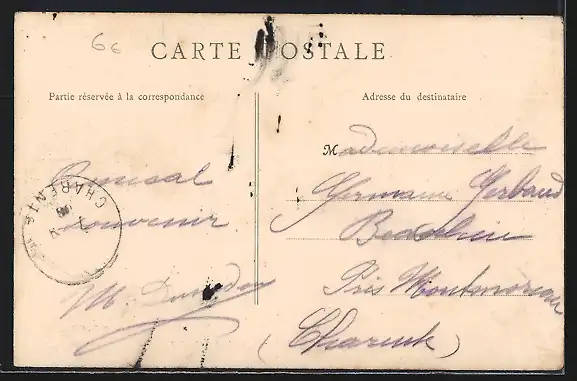 66
CARTE POSTALE
Partie réservée à la correspondance
Adresse du destinataire
Mademoiselle
Amical
Germaine Gerbaud
souvenir
CHARENTE
Près Montmoreau
M.
(Charente)